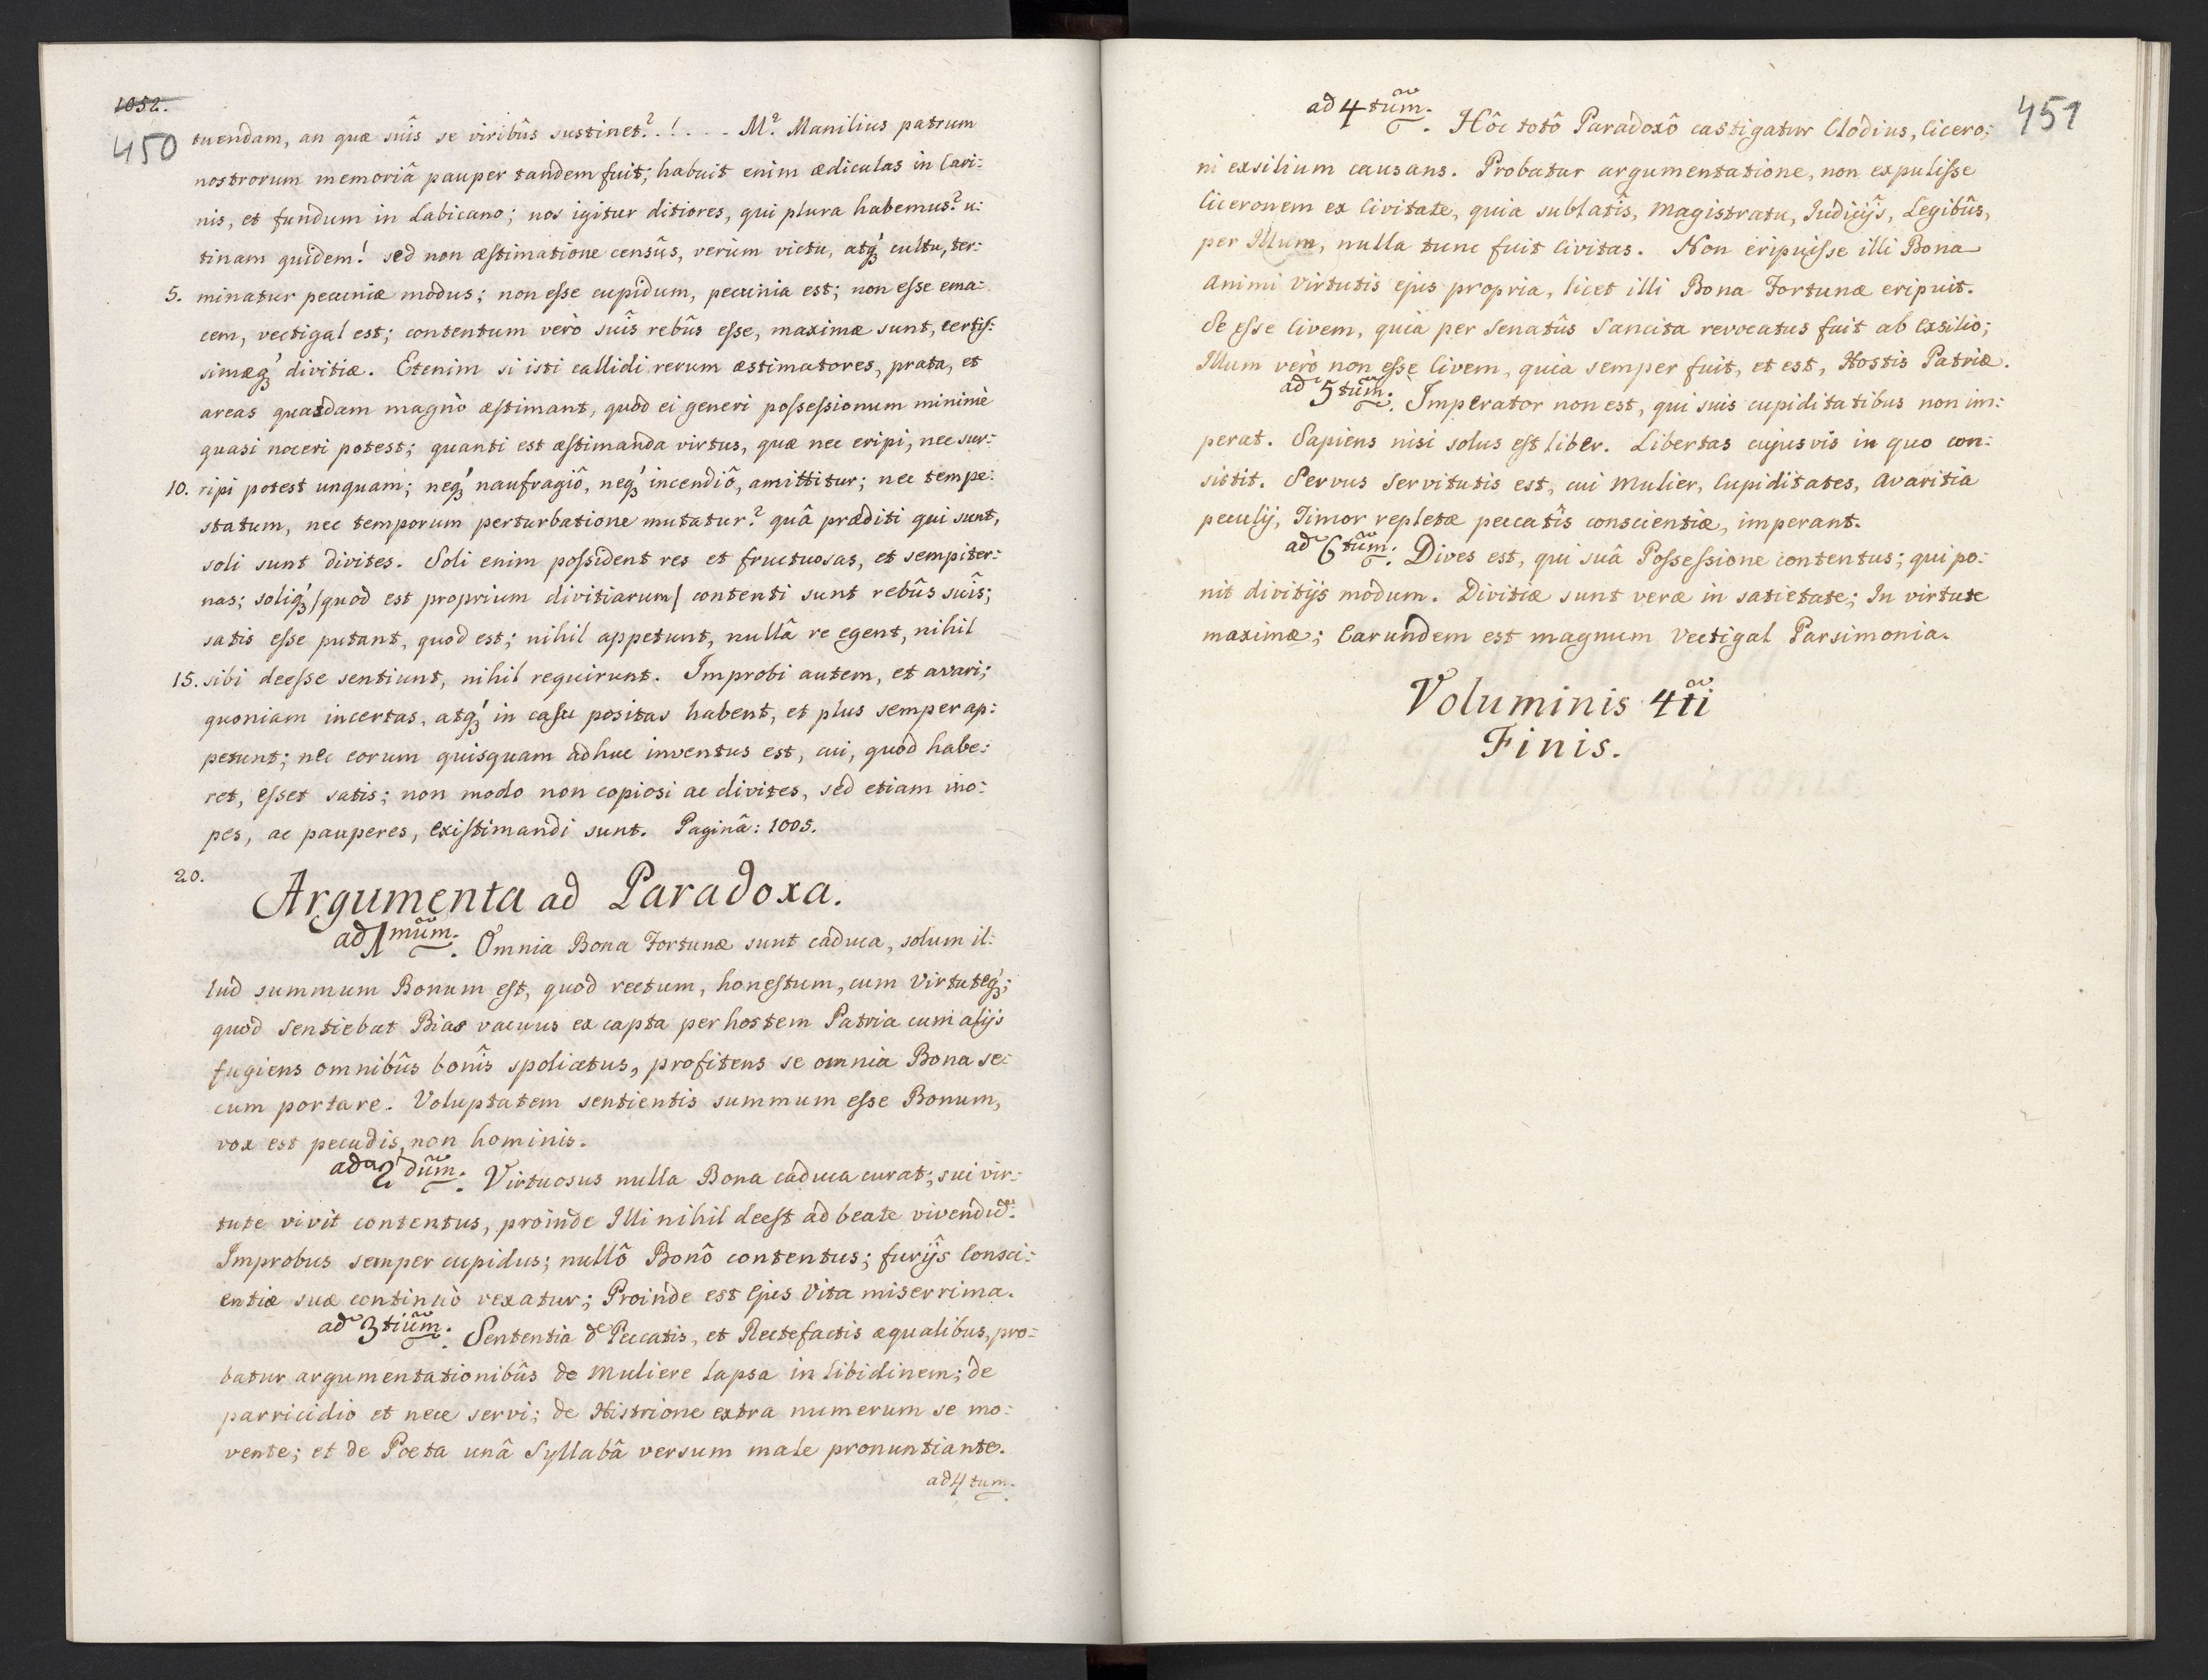 1052.
450
tuendam, an quæ suîs se viribûs sustinet? . ! . . . M? Manilius patrum
nostrorum memoriâ pauper tandem fuit; habuit enim ædiculas in Cari:
nis, et fundum in Labicano; nos igitur ditiores, qui plura habemus? u:
tinam quidem! sed non æstimatione censûs, verùm victu, atq́ꝫ cultu, ter:
5. minatur pecuniæ modus; non esse cupidum, pecunia est; non esse ema:
cem, vectigal est; contentum verò suîs rebûs esse, maximæ sunt, certis:
simæq́ꝫ divitiæ. Etenim si isti callidi rerum æstimatores, prata, et
areas quasdam magnò æstimant, quòd ei generi possessionum minimè
quasi noceri potest; quanti est æstimanda virtus, quæ nec eripi, nec sur:
10. ripi potest unquam; neq́ꝫ naufragiô, neq́ꝫ incendiô, amittitur; nec tempe:
statum, nec temporum perturbatione mutatur? quâ præditi qui sunt,
soli sunt divites. Soli enim possident res et fructuosas, et sempiter:
nas; soliq́ꝫ /quod est proprium divitiarum/ contenti sunt rebûs suîs;
satis esse putant, quod est; nihil appetunt, nullâ re egent, nihil
15. sibi deesse sentiunt, nihil requirunt. Improbi autem, et avari;
quoniam incertas, atq́ꝫ in casu positas habent, et plus semper ap:
petunt; nec eorum quisquam adhuc inventus est, cui, quod habe:
ret, esset satis; non modo non copiosi ac divites, sed etiam ino:
pes, ac pauperes, existimandi sunt. Paginâ: 1005.
20.
Argumenta ad Paradoxa.
ad 1mum. Omnia Bona Fortunæ sunt caduca, solum il:
lud summum Bonum est, quod rectum, honestum, cum Virtuteq́ꝫ;
quod sentiebat Bias vacuus ex capta per hostem Patria cum alijs
fugiens omnibûs bonîs spoliatus, profitens se omnia Bona se:
cum portare. Voluptatem sentientis summum esse Bonum,
vox est pecudis, non hominis.
ad 2dum. Virtuosus nulla Bona caduca curat; sui vir:
tute vivit contentus, proinde Illi nihil deest ad beate vivendũ:
Improbus semper cupidus; nullô Bonô contentus; furijs Consci:
entiæ suæ continuò vexatur; Proinde est Ejus Vita miserrima.
ad 3tium. Sententia de Peccatis, et Rectefactis æqualibus, pro:
batur argumentationibûs de Muliere Lapsa in libidinem; de
parricidio et nece servi; de Histrione extra numerum se mo:
vente; et de Poeta unâ Syllabâ versum male pronuntiante.
ad 4tum.
451
ad 4tum. Hôc totô Paradoxô castigatur Clodius, Cicero:
ni exsilium causans. Probatur argumentatione, non expulisse
Ciceronem ex Civitate, quia sublatîs, Magistratu, Judicijs, Legibûs,
per Illum, nulla tunc fuit Civitas. Non eripuisse illi Bona
Animi Virtutis ejus propria, licet illi Bona Fortunæ eripuit.
Se esse Civem, quia per Senatûs Sancita revocatus fuit ab Exsilio;
Illum verò non esse Civem, quia semper fuit, et est, Hostis Patriæ.
ad 5tum. Imperator non est, qui suis cupiditatibus non im:
perat. Sapiens nisi solus est liber. Libertas cujusvis in quo con:
sistit. Servus Servitutis est, cui Mulier, Cupiditates, Avaritia
peculij, Timor repletæ peccatîs conscientiæ, imperant.
ad 6tum. Dives est, qui suâ Possessione contentus; qui po:
nit divitijs modum. Divitiæ sunt veræ in satietate; In virtute
maximæ; Earundem est magnum Vectigal Parsimonia.
Voluminis 4ti
Finis.